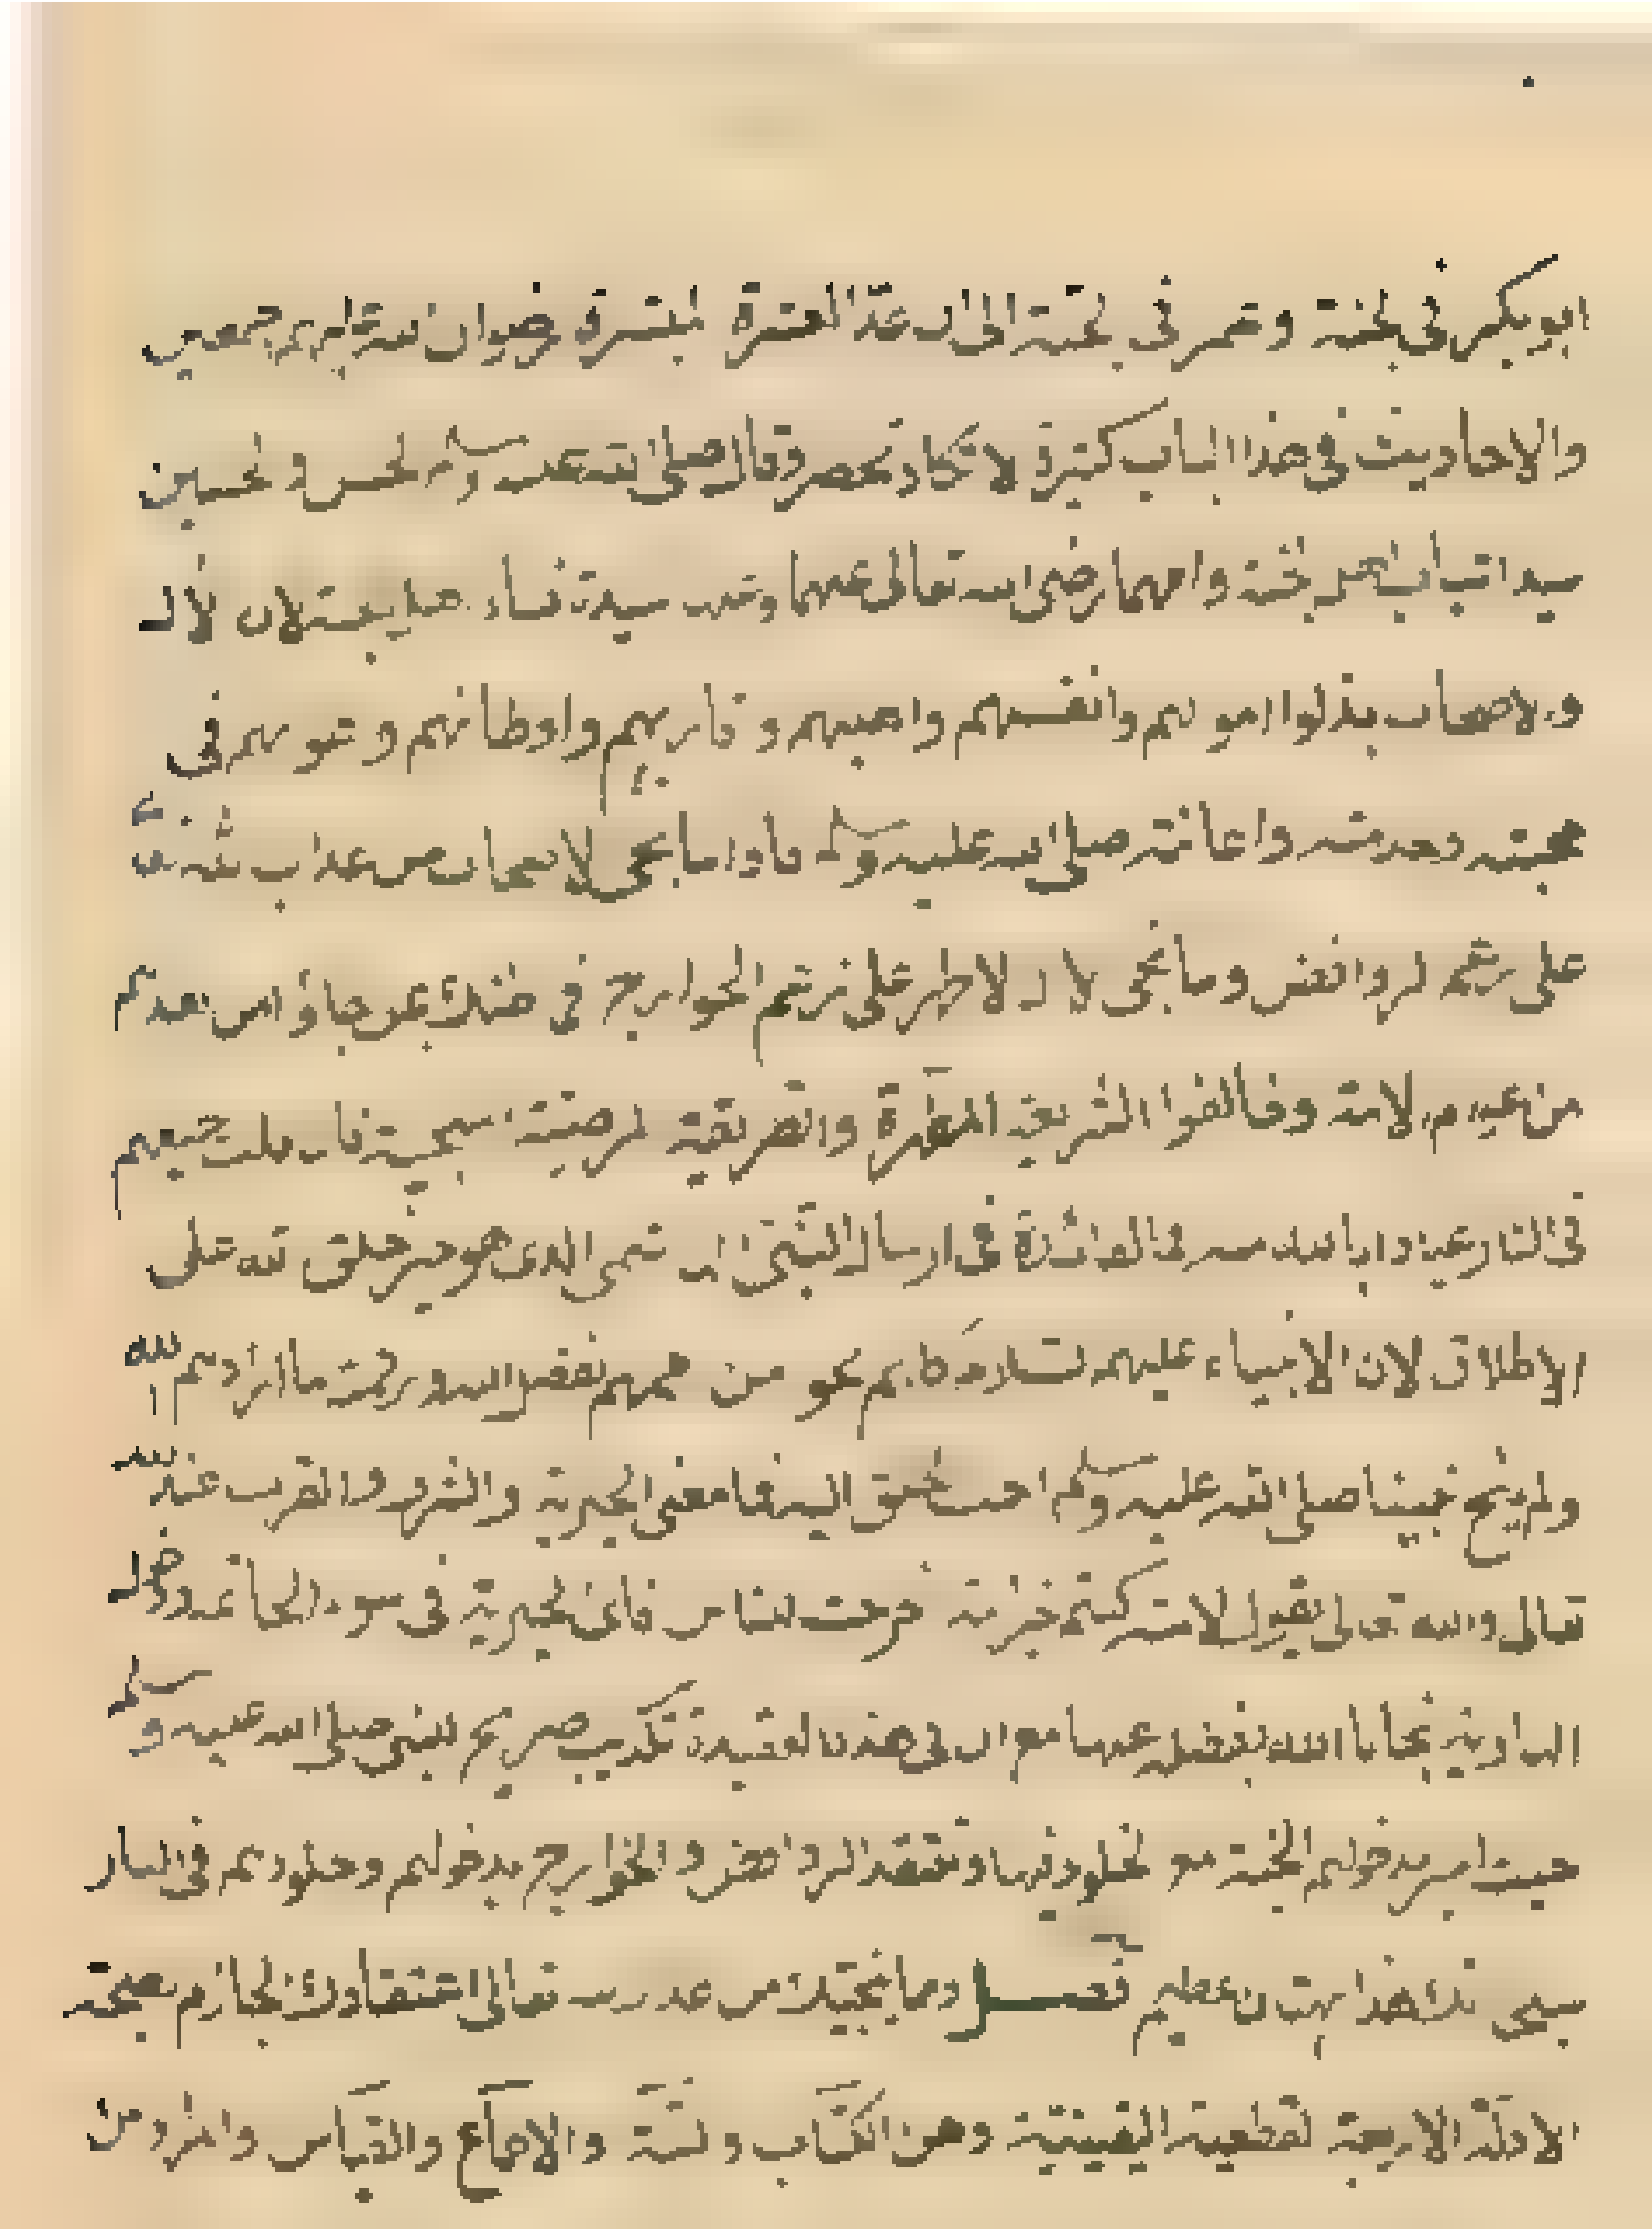 ابوبكر في الجنة وعمر في الجنة الى ان عد العشرة المبشرة رضوان الله عليهم اجمعين
والاحاديث في هذا الباب كثيرة لا تكاد تحصر وقال صلى الله عليه وسلم الحسن والحسين
سيدا شباب اهل الجنة وامهما رضى الله تعالى عنهما وعنه سيدة نساء اهل الجنة لان الآل
والاصحاب بذلوا اموالهم وانفسهم واهليهم واقاربهم واوطانهم وعيونهم في
محبته وخدمته واعانته صلى الله عليه وسلم فاذا ما نجى الاصحاب من عذاب الله تعالى
على زعم الروافض وما نجى الآل الاطهر على زعم الخوارج في ظنك بمن جاؤا من بعدهم
من عوام الامة وخالفوا الشريعة المطهرة والطريقة المرضية السمحية فان قلت جميعهم
في النار عياذا بالله من ذلك فما الفائدة في ارسال النبى الهاشمى الذى هو خير خلق الله على
الاطلاق لان الانبياء عليهم السلام كلهم نجو من اممهم بفضل الله ورحمته ما ارادهم الله
ولم ينج نبينا صلى الله عليه وسلم احب الخلق اليه فما معنى الخيرية والشهرة والقرب عند الله
تعالى والله تعالى يقول لامته كنتم خير امة اخرجت للناس فاى الخيرية في سوء الخاتمة ودخول
الهاوية نجانا الله بفضله عنها مع ان في هذه العقيدة تكذيب صريح للنبى صلى الله عليه وسلم
حيث امر بدخولهم الجنة مع الخلود فيها وتعتقد الروافض والخوارج بدخولهم وخلودهم في النار
سبحانك هذا بهتان عظيم فصل ومما ينجيك من عذاب الله تعالى اعتقادك الجازم بصحة
الادلة الاربعة القطعية اليقينية وهى الكتاب والسنة والاجماع والقياس والمراد من